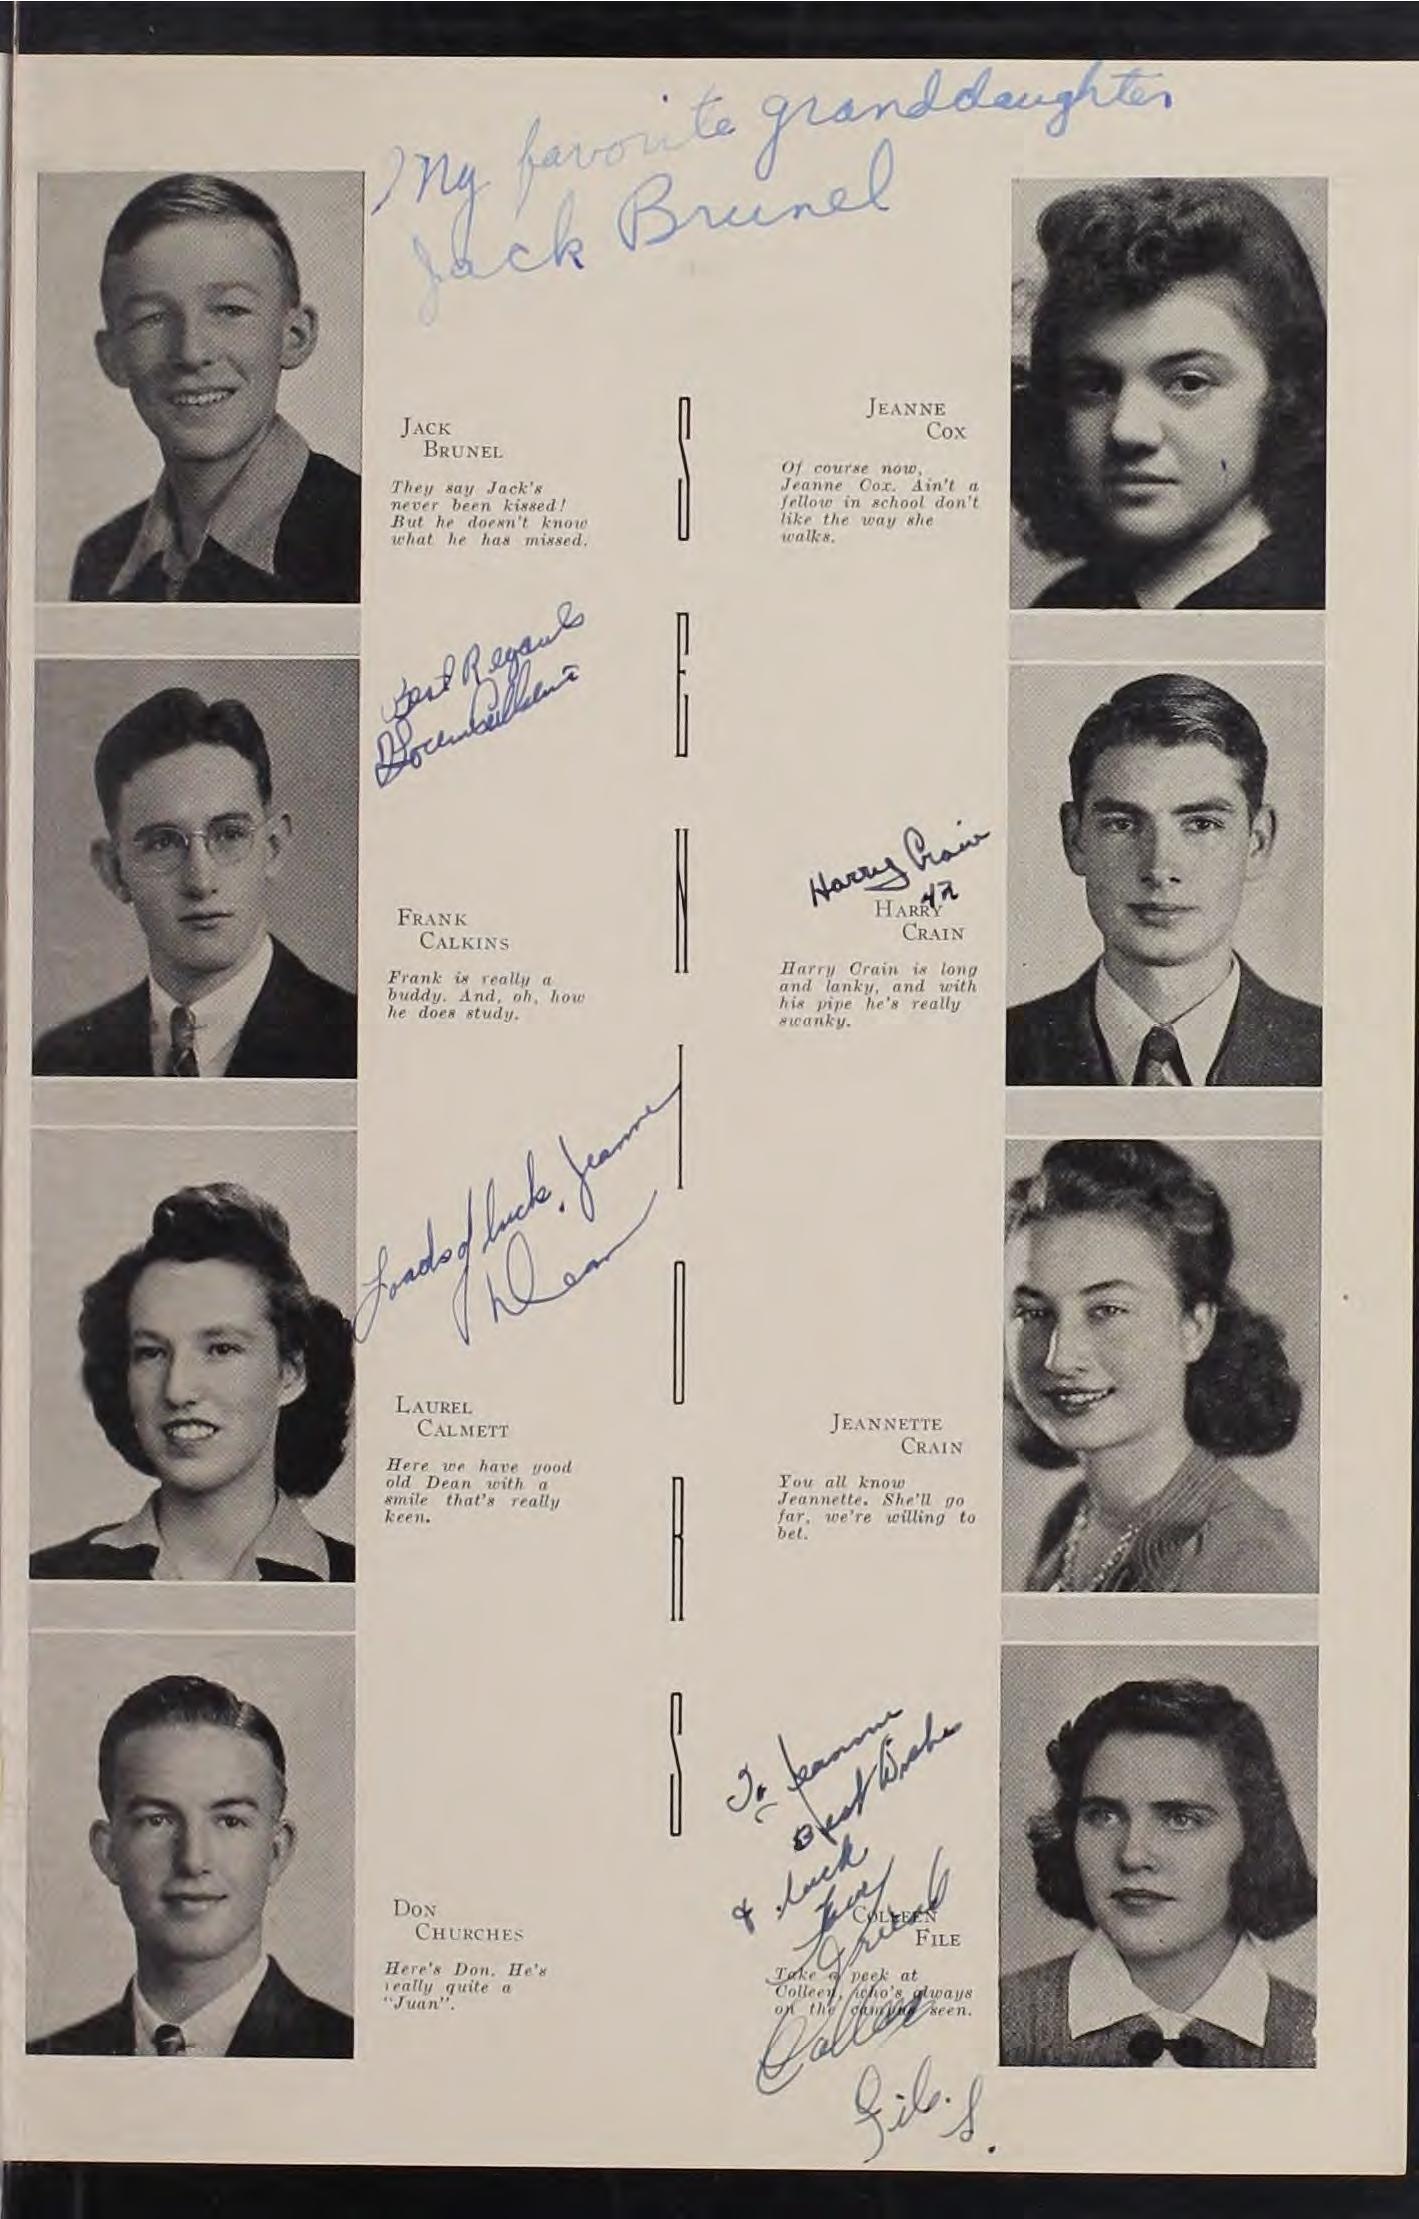 My favorite granddaughter
Jack Brunel
JACK
BRUNEL
They say Jack's
never been kissed!
But he doesn't know
what he has missed.
Best Regards
FRANK
CALKINS
Frank is really a
buddy. And, oh, how
he does study.
Loads of luck, Jeanne
Dean
LAUREL
CALMETT
Here we have good
old Dean with a
smile that's really
keen.
DON
CHURCHES
Here's Don. He's
really quite a
"Juan".
SENIORS
JEANNE
COX
Of course now,
Jeanne Cox. Ain't a
fellow in school don't
like the way she
walks.
Harry Crain
42
HARRY
CRAIN
Harry Crain is long
and lanky, and with
his pipe he's really
swanky.
JEANNETTE
CRAIN
You all know
Jeannette. She'll go
far, we're willing to
bet.
To Jeanne
Best Wishes
& luck
COLLEEN
FILE
Take a peek at
Colleen, who's always
on the campus seen.
Your
Friend
Colleen
File.